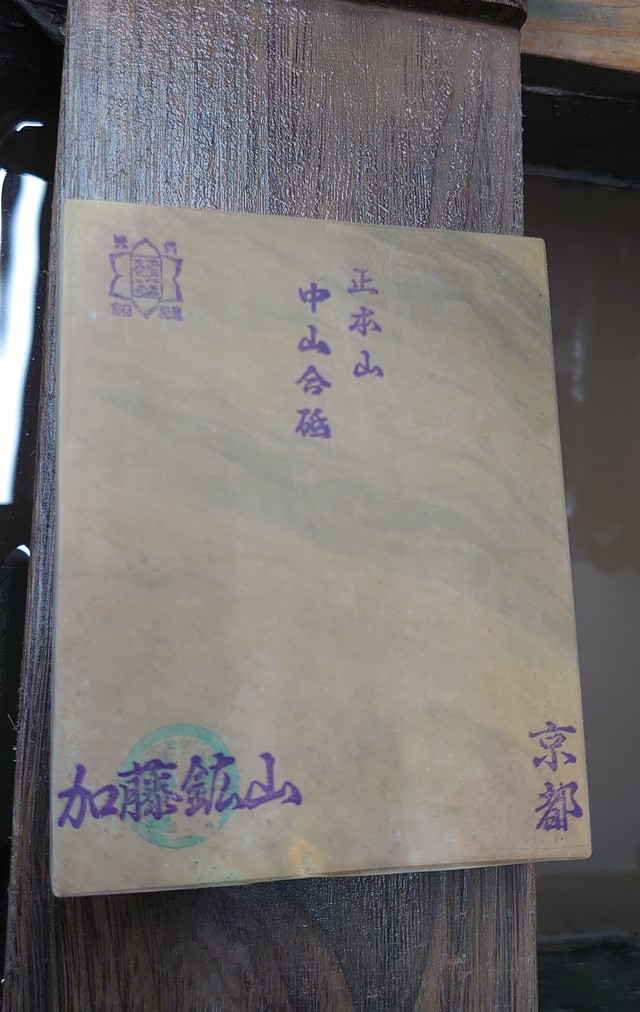 正本山
中山合砥
京都
加藤鉱山